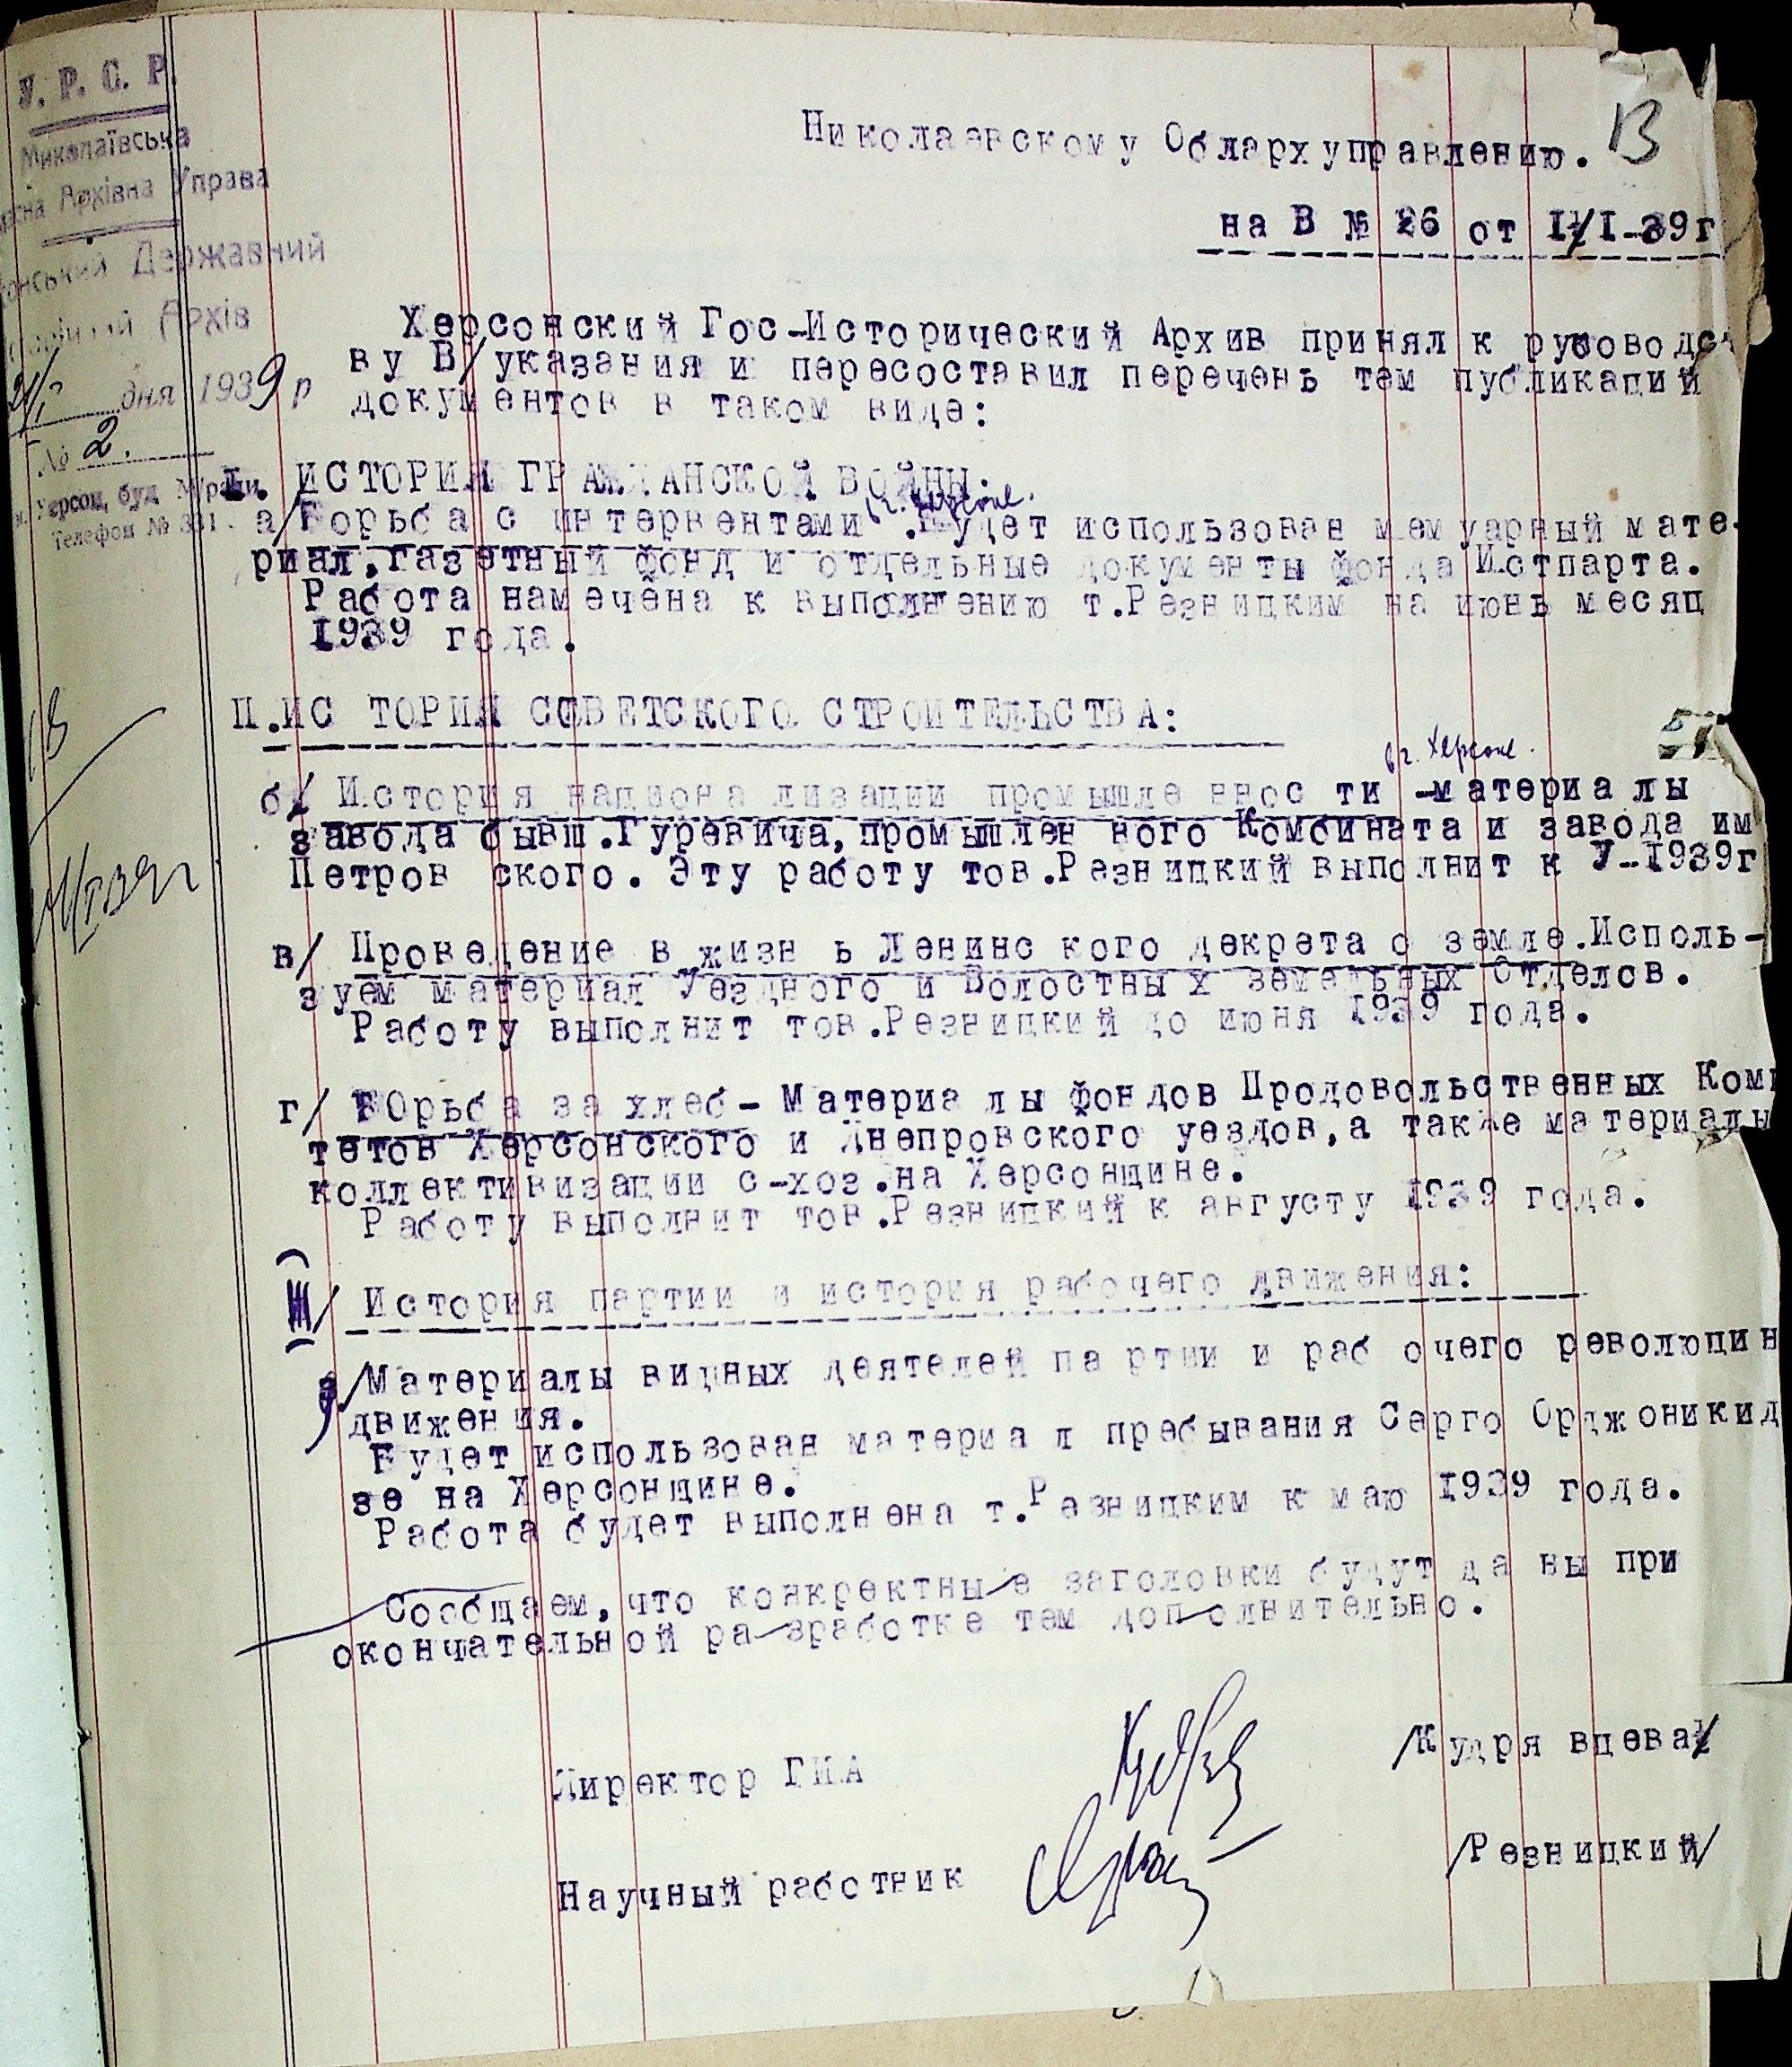 У. Р. С. Р.
Миколаївська
Архівна Управа
Державний
Архів
дня 1939 р
№ 2.
Херсон, буд
Телефон №
13
Николаевскому Облархуправлению.
на В № 26 от 1/1-39г
Херсонский Гос-Исторический Архив принял к руководст
ву В/указания и пересоставил перечень тем публикаций
документов в таком виде:
I. ИСТОРИЯ ГРАЖДАНСКОЙ ВОЙНЫ:
в г. Херсоне.
а/Борьба с интервентами .Будет использован мемуарный мате-
риал, газетный фонд и отдельные документы фонда Истпарта.
Работа намечена к выполнению т.Резницким на июнь месяц
1939 года.
П.ИС ТОРИЯ СОВЕТСКОГО СТРОИТЕЛЬСТВА:
в г. Херсоне.
б/ История национа лизации промышле ннос ти -материа лы
завода бывш.Гуревича,промышлен ного Комбината и завода им
Петров ского. Эту работу тов.Резницкий выполнит к У-1939г
в/ Проведение в жизн ь Ленинс кого декрета о земле.Исполь-
зуем материал Уездного и Волостны х земельных Отделов.
Работу выполнит тов.Резницкий до июня 1939 года.
г/ БОрьба за хлеб- Материа лы фондов Продовольственных Коми
тетов Херсонского и Днепровского уездов,а также материалы
коллективизации с-хоз.на Херсонщине.
Работу выполнит тов.Резницкий к августу 1939 года.
Ш/ История партии и история рабочего движения:
д/Материалы видных деятелей па ртии и раб очего революцин
движения.
Будет использован материа л пребывания Серго Орджоникид
зе на Херсонщине.
Работа будет выполнена т.Резницким к маю 1939 года.
Сообщаем,что конкретны е заголовки будут да ны при
окончательной ра зработке тем доп олнительно.
Директор ГИА /Кудря вцева/
Научный работник /Резницкий/